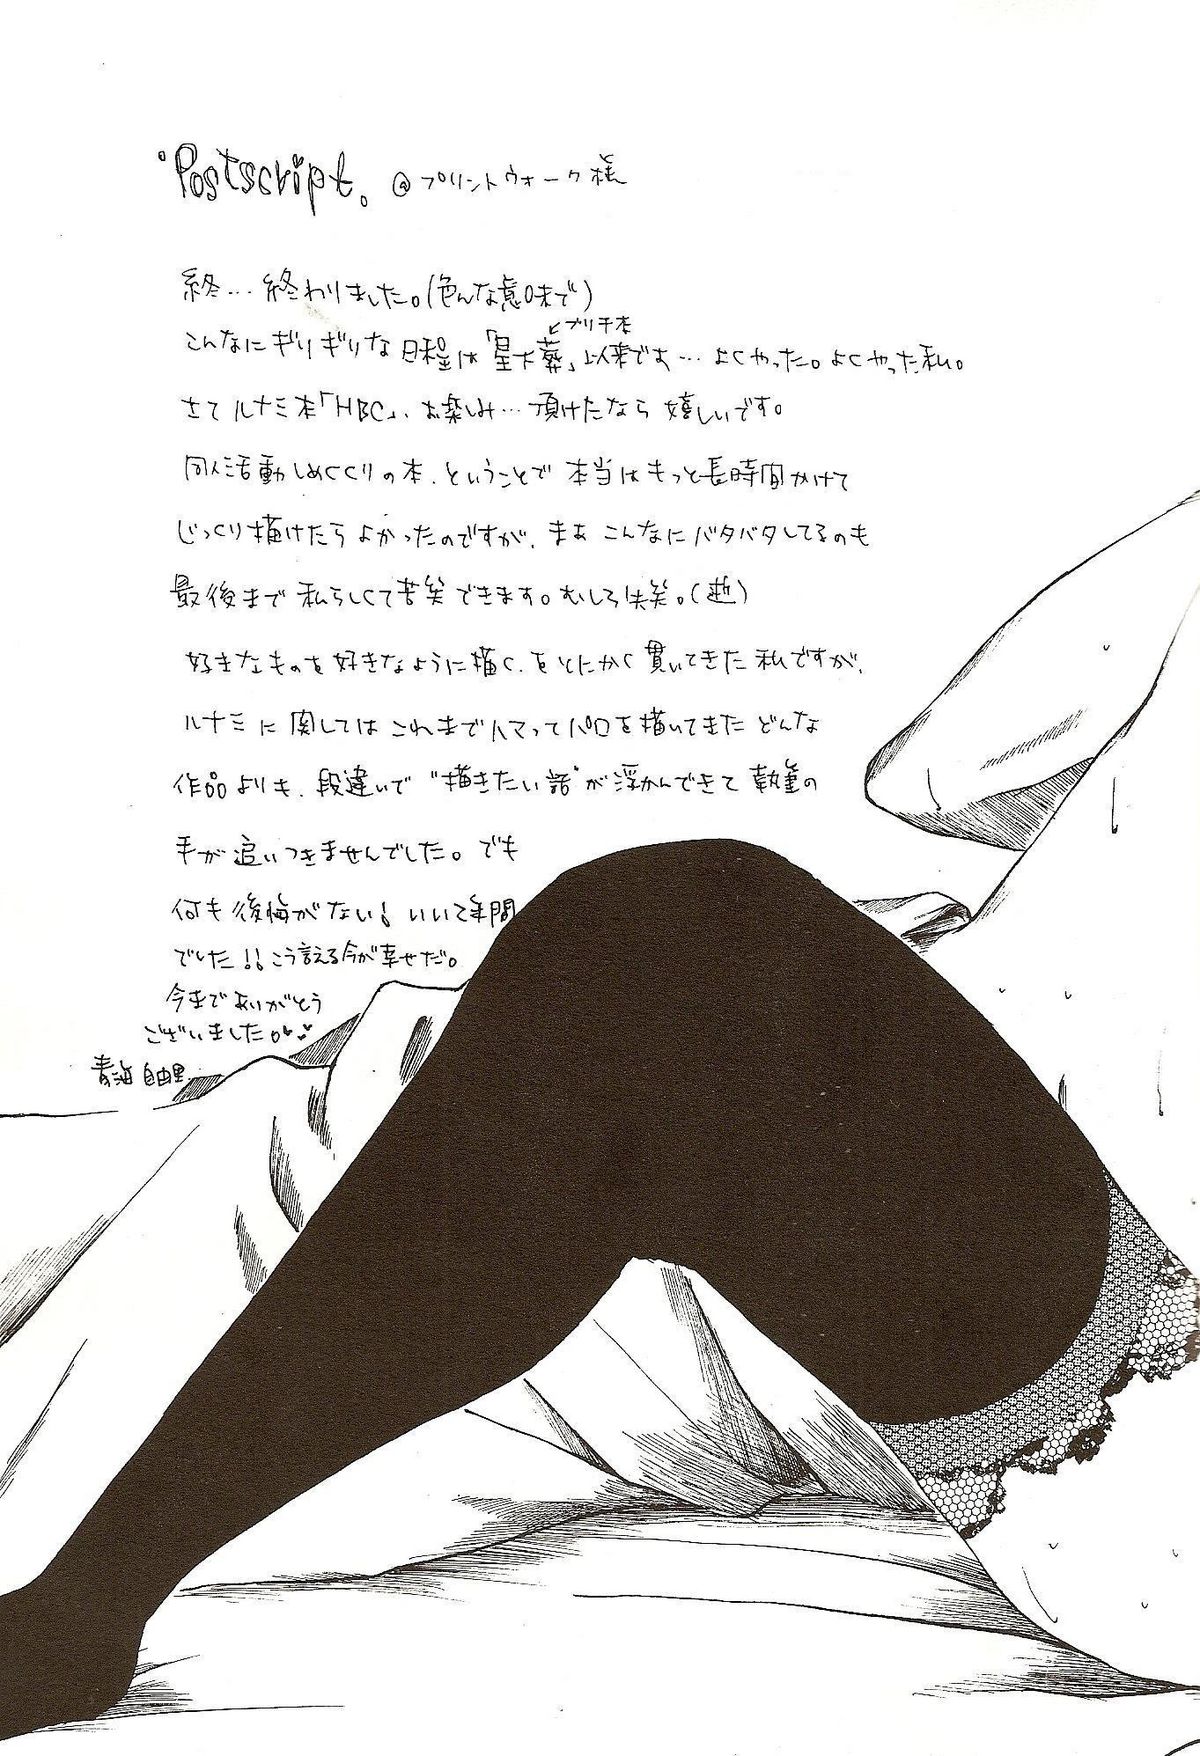 Postscript. @プリントウォーク様
終…終わりました。(色んな意味で)
プリチ本
こんなにギリギリな日程は「星大葬」以来です…よくやった。よくやった私。
さてルナミ本「HBC」、お楽しみ…頂けたなら嬉しいです。
同人活動しめくくりの本、ということで本当はもっと長時間かけて
じっくり描けたらよかったのですが、まぁこんなにバタバタしてるのも
最後まで私らしくて苦笑できます。むしろ失笑。(逝)
好きなものを好きなように描く、をとにかく貫いてきた私ですが、
ルナミに関してはこれまでハマってパロを描いてきたどんな
作品よりも、段違いで“描きたい話”が浮かんできて執筆の
手が追いつきませんでした。でも
何も後悔がない!いい年間
でした!!こう言える今が幸せだ。
今までありがとう
ございました。
青海 自由里